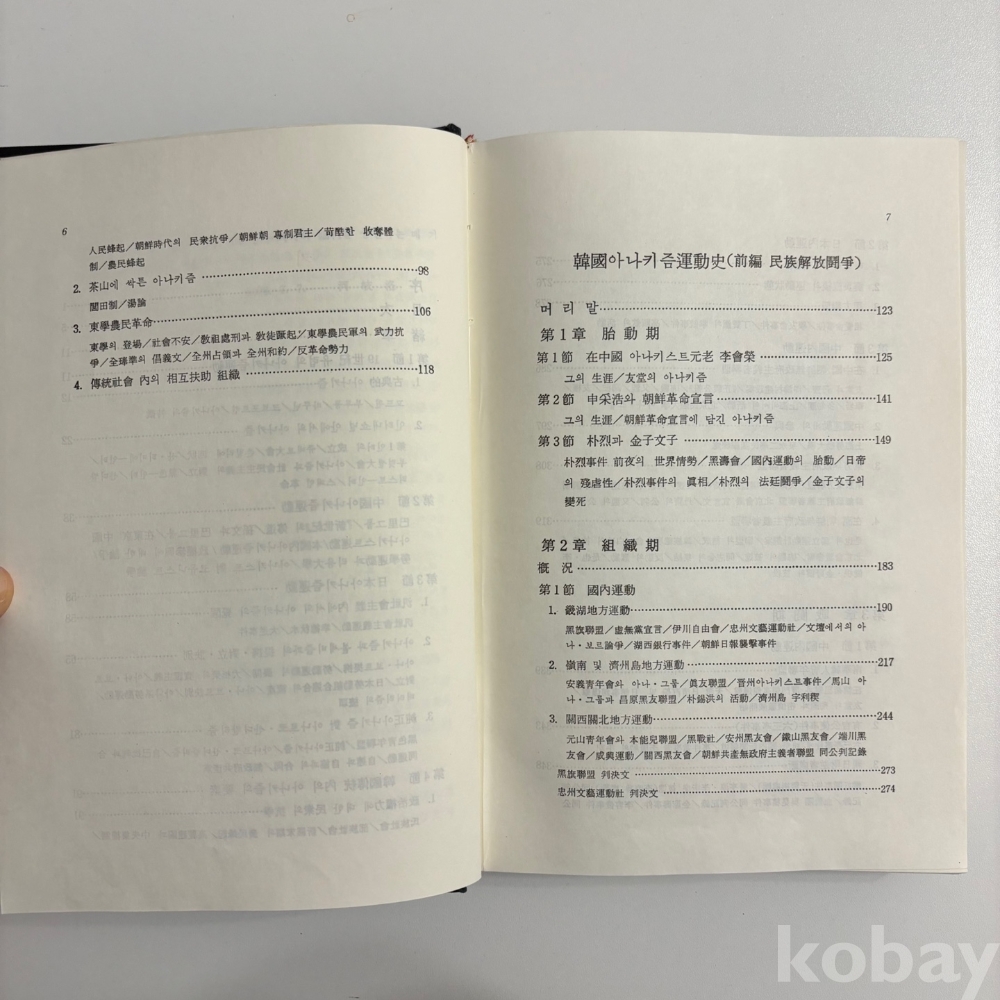 6
人民蜂起/朝鮮時代의 民衆抗爭/朝鮮朝 專制君主/苛酷한 收奪體
制/農民蜂起
2. 茶山에 싹튼 아나키즘 98
閭田制/湯論
3. 東學農民革命 106
東學의 登場/社會不安/敎祖處刑과 敎徒蹶起/東學農民軍의 武力抗
爭/全琫準의 倡義文/全州占領과 全州和約/反革命勢力
4. 傳統社會 內의 相互扶助 組織 118
7
韓國아나키즘運動史(前編 民族解放鬪爭)
머리말 123
第1章 胎動期
第1節 在中國 아나키스트元老 李會榮 125
그의 生涯/友堂의 아나키즘
第2節 申采浩와 朝鮮革命宣言 141
그의 生涯/朝鮮革命宣言에 담긴 아나키즘
第3節 朴烈과 金子文子 149
朴烈事件 前夜의 世界情勢/黑濤會/國內運動의 胎動/日帝
의 殘虐性/朴烈事件의 眞相/朴烈의 法廷鬪爭/金子文子의
變死
第2章 組織期
槪況 183
第1節 國內運動
1. 畿湖地方運動 190
黑旗聯盟/虛無黨宣言/伊川自由會/忠州文藝運動社/文壇에서의 아
나·보르論爭/湖西銀行事件/朝鮮日報襲擊事件
2. 嶺南 및 濟州島地方運動 217
安義靑年會와 아나·그룹/眞友聯盟/晋州아나키스트事件/馬山 아
나·그룹과 昌原黑友聯盟/朴錫洪의 活動/濟州島 宇利稧
3. 關西關北地方運動 244
元山靑年會와 本能兒聯盟/黑戰社/安州黑友會/鐵山黑友會/端川黑
友會/咸興運動/關西黑友會/朝鮮共產無政府主義者聯盟 同公判記錄
黑旗聯盟 判決文 273
忠州文藝運動社 判決文 274
kobay